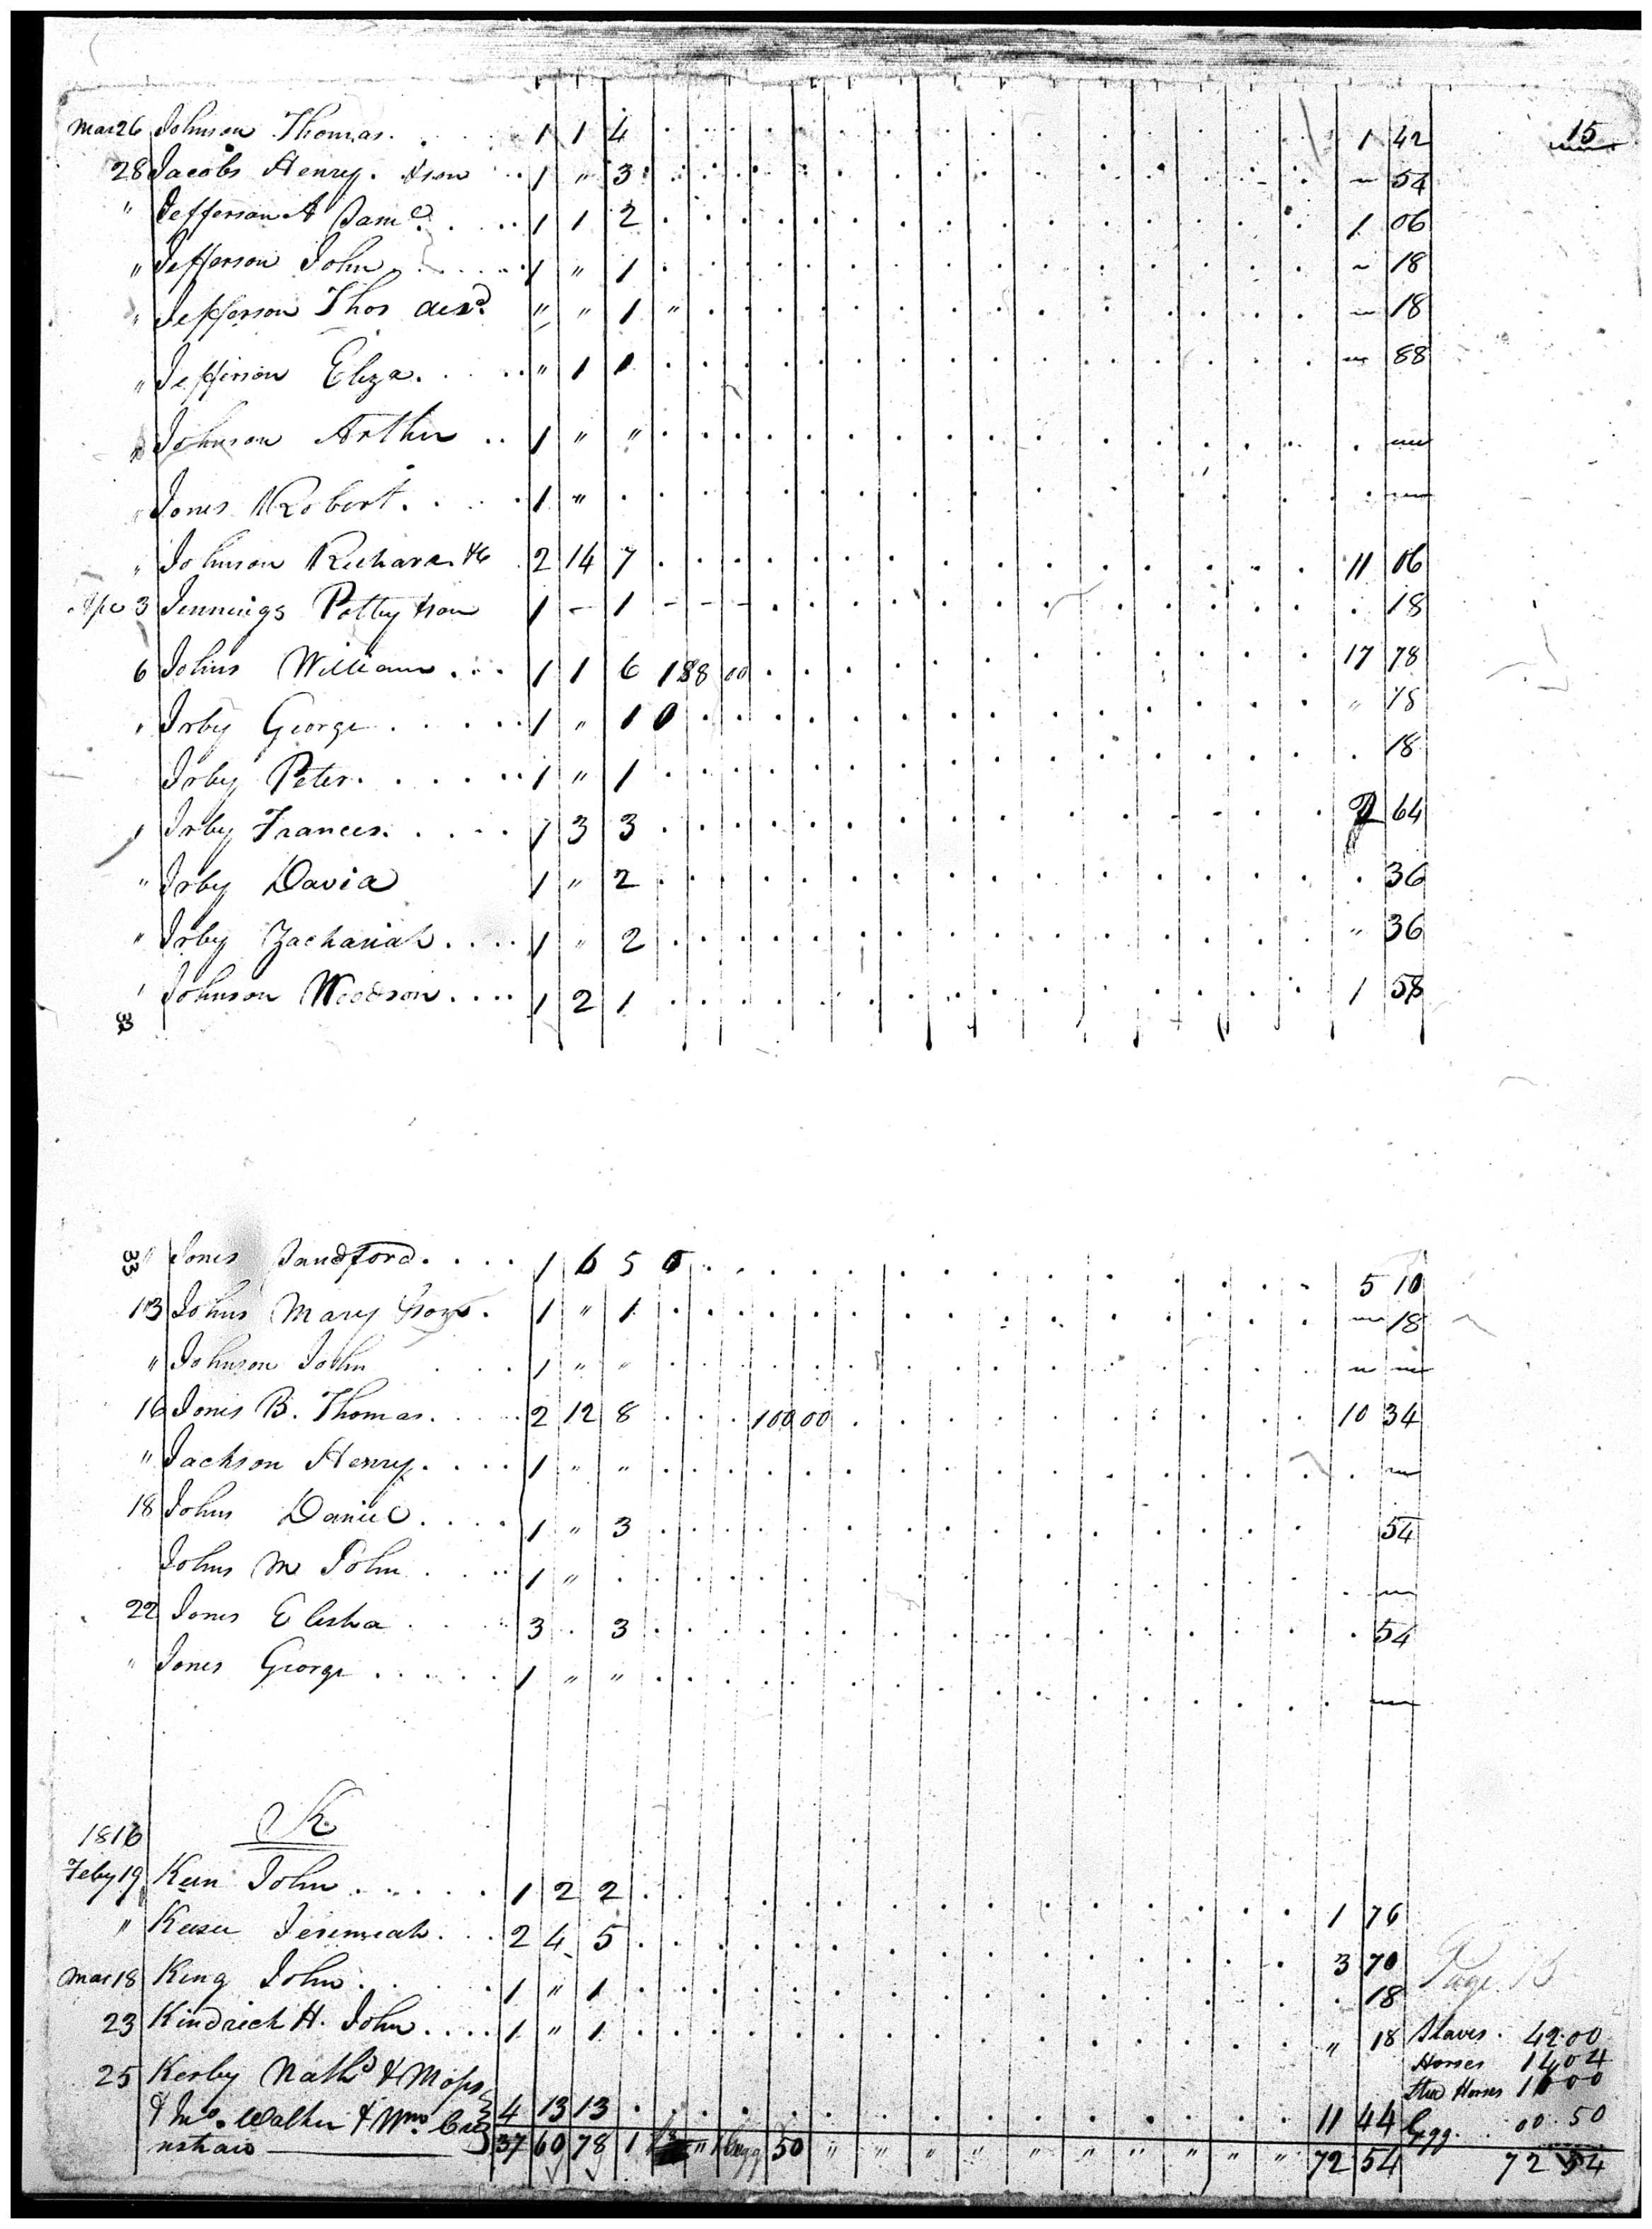 15
Mar 26 Johnson Thomas. 1 1 4 1 42
28 Jacobs Henry. & son 1 " 3 ~ 54
" Jefferson A Sam<sup>l</sup>. 1 1 2 1 06
" Jefferson John 1 " 1 ~ 18
" Jefferson Thos decd. " " 1 " ~ 18
" Jefferson Eliza. " 1 1 ~ 88
" Johnson Arthur 1 " "
" Jones Robert. 1 "
" Johnson Richard 2 14 7 11 06
Apl 3 Jennings Patty & son 1 - 1 - - - 18
6 Johns William 1 1 6 1 88 00 17 78
" Irby George 1 " 1 0 " 18
Irby Peter. 1 " 1 18
" Irby Frances. 1 3 3 2 64
" Irby David 1 " 2 36
" Irby Zachariah. 1 " 2 " 36
" Johnson Woodson. 1 2 1 1 58
32
33 " Jones Sandford. 1 6 5 0 5 10
13 Johns Mary & son. 1 " 1 18
" Johnson John 1 " "
16 Jones B. Thomas. 2 12 8 100 00 10 34
" Jackson Henry. 1 " "
18 Johns Daniel 1 " 3 54
Johns M John 1 "
22 Jones Elisha 3 . 3 54
" Jones George 1 " "
1816 K.
Feby 19 Keen John 1 2 2 1 76
" Keesee Jeremiah. 2 4 5 3 70
Mar 18 King John 1 " 1 18
Page 15
23 Kindrick H. John 1 " 1 " 18
Slaves. 42.00
Horses 14 04
Stud Horses 16 00
25 Kerby Nath<sup>l</sup> & Moses
& Walker & Wm. Cre 4 13 13 11 44
Gigg. 00.50
nshaw 37 60 78 1 " 1 Gigg 50 " " " " " " " " " " 72 54
72 54